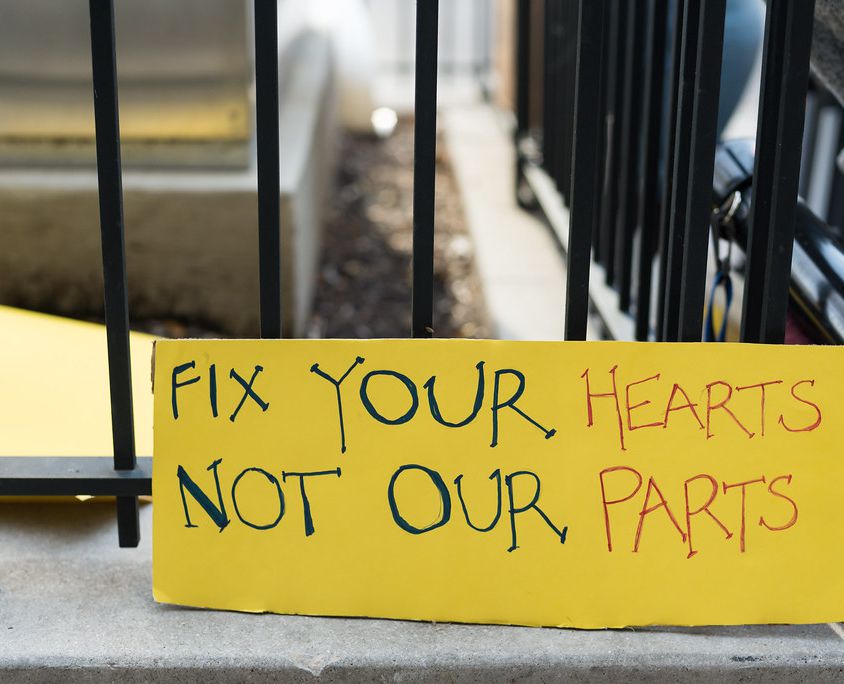 FIX YOUR HEARTS
NOT OUR PARTS